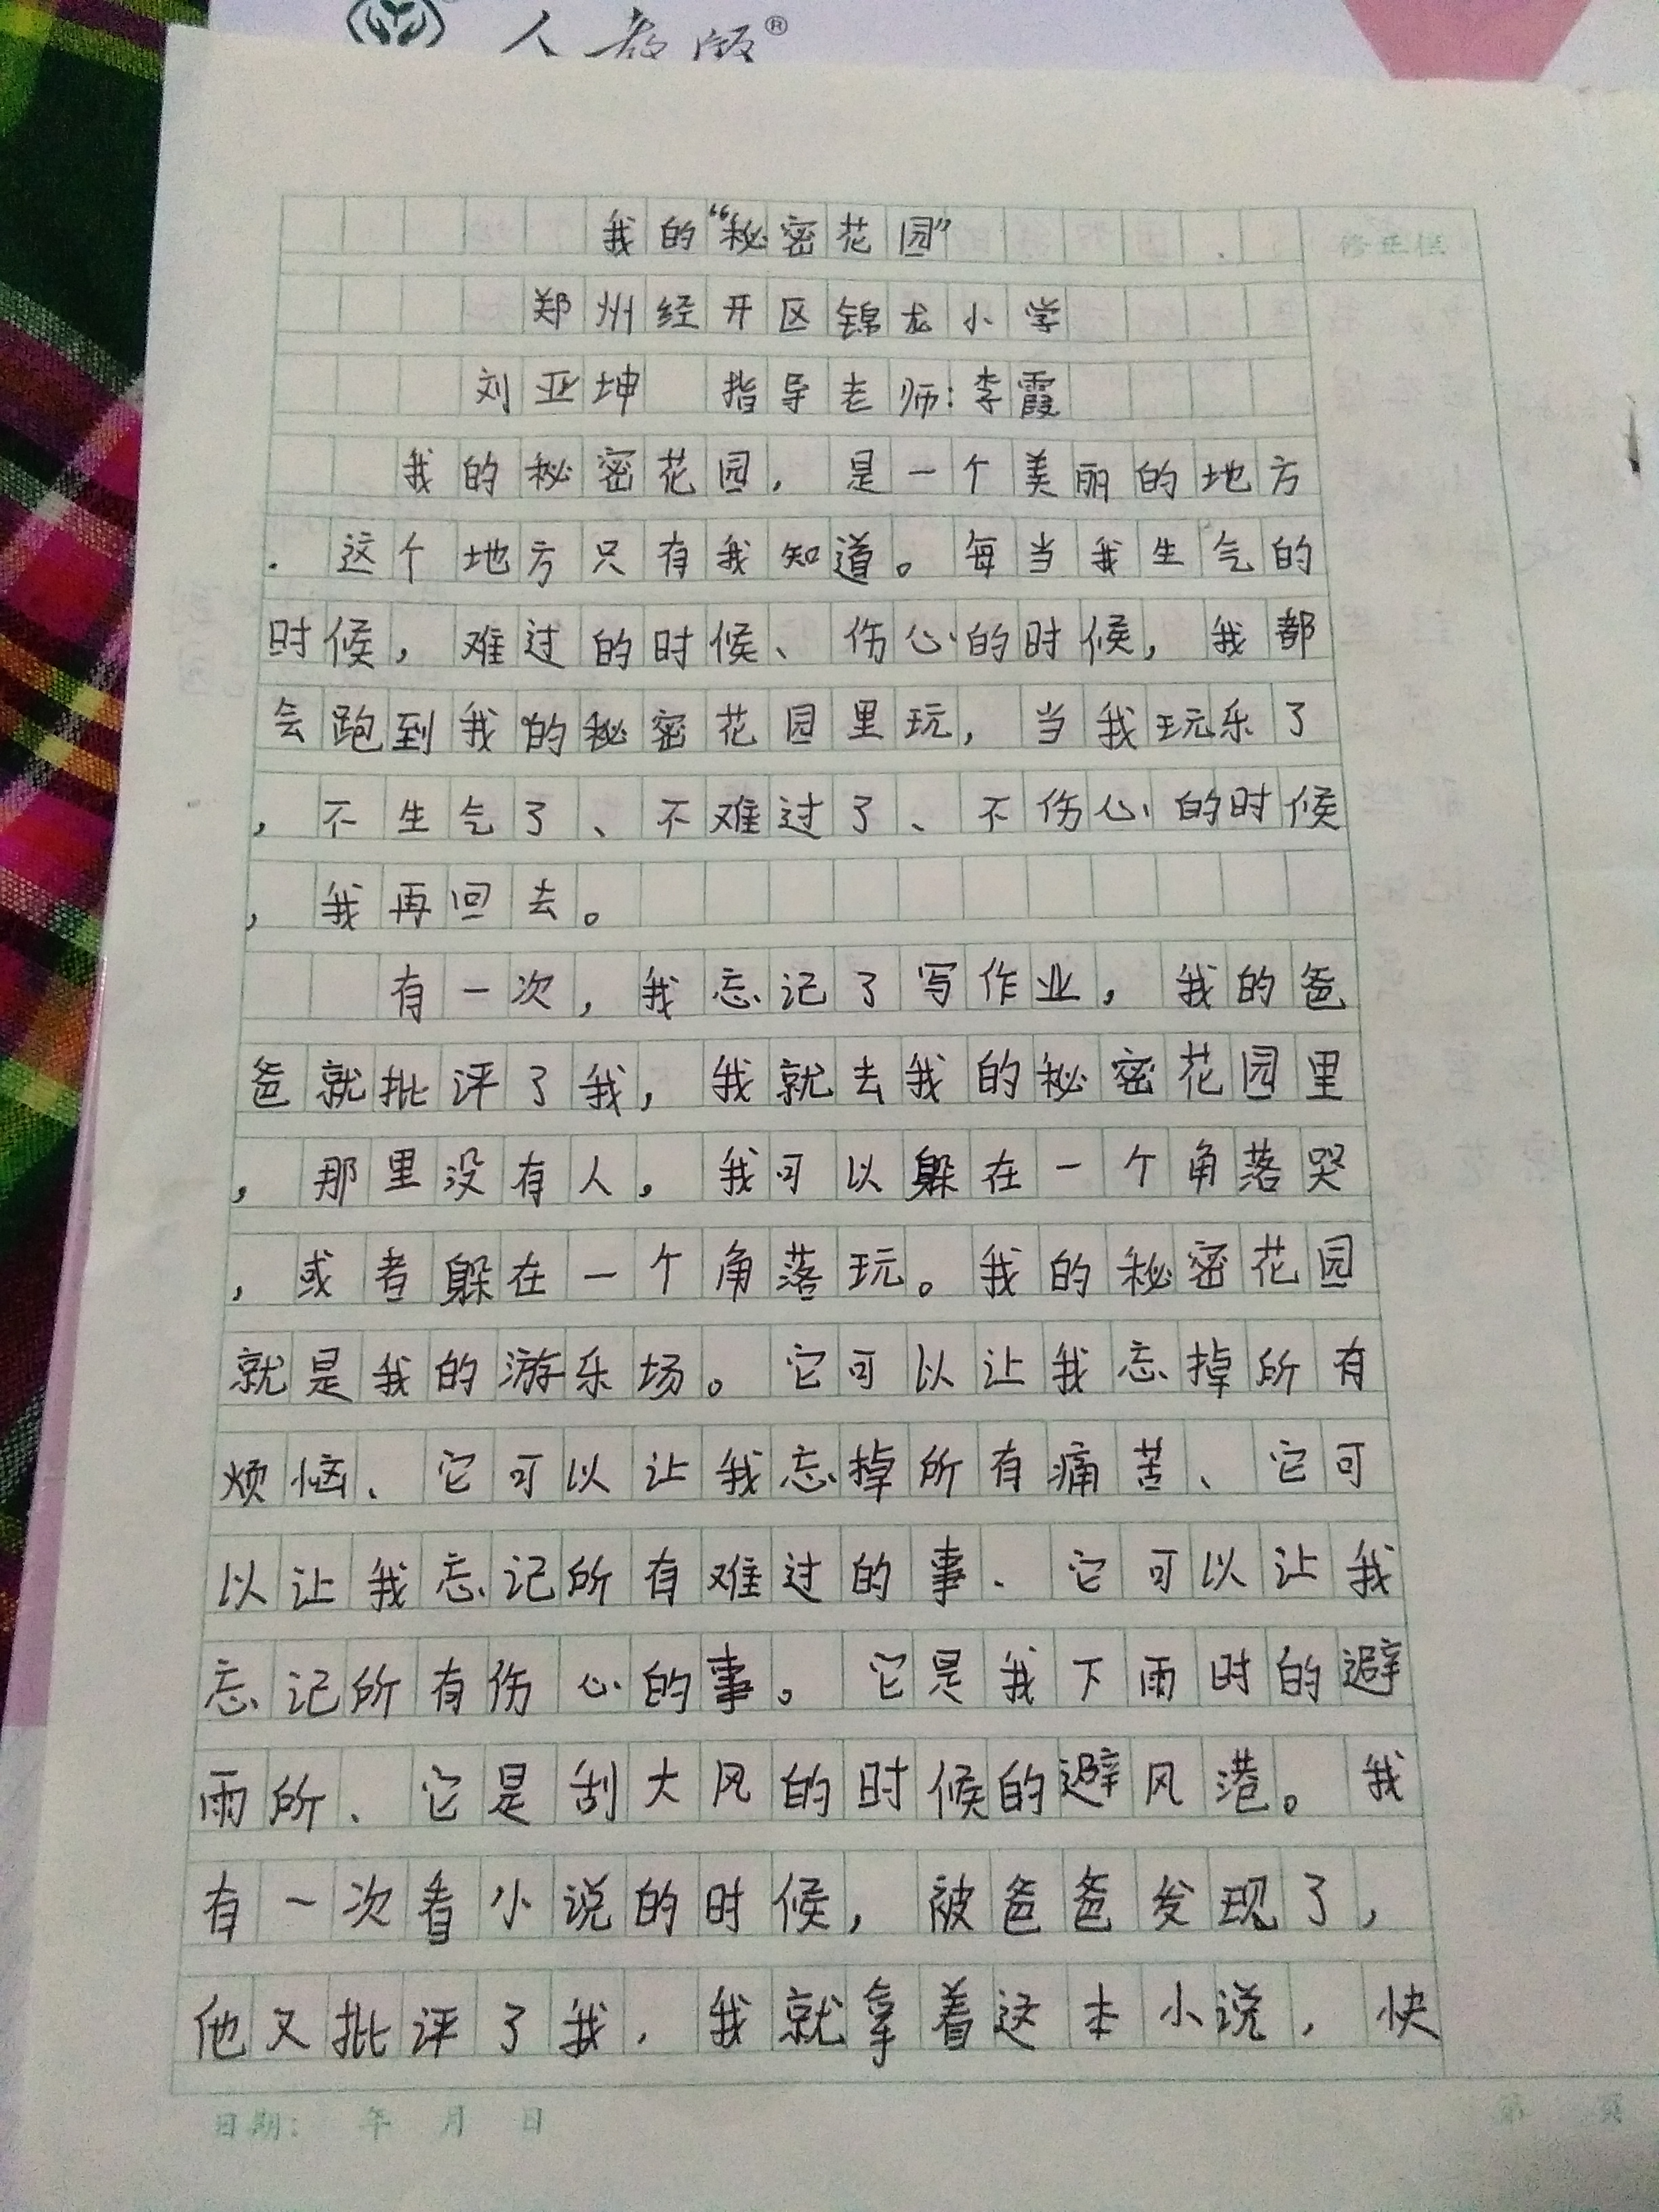 人教版®
我的“秘密花园”
修正栏
郑州经开区锦龙小学
刘亚坤 指导老师:李霞
我的秘密花园,是一个美丽的地方
.这个地方只有我知道。每当我生气的
时候,难过的时候、伤心的时候,我都
会跑到我的秘密花园里玩,当我玩乐了
,不生气了、不难过了、不伤心的时候
,我再回去。
有一次,我忘记了写作业,我的爸
爸就批评了我,我就去我的秘密花园里
,那里没有人,我可以躲在一个角落哭
,或者躲在一个角落玩。我的秘密花园
就是我的游乐场。它可以让我忘掉所有
烦恼、它可以让我忘掉所有痛苦、它可
以让我忘记所有难过的事、它可以让我
忘记所有伤心的事。它是我下雨时的避
雨所、它是刮大风的时候的避风港。我
有一次看小说的时候,被爸爸发现了,
他又批评了我,我就拿着这本小说,快
日期: 年 月 日
第 页